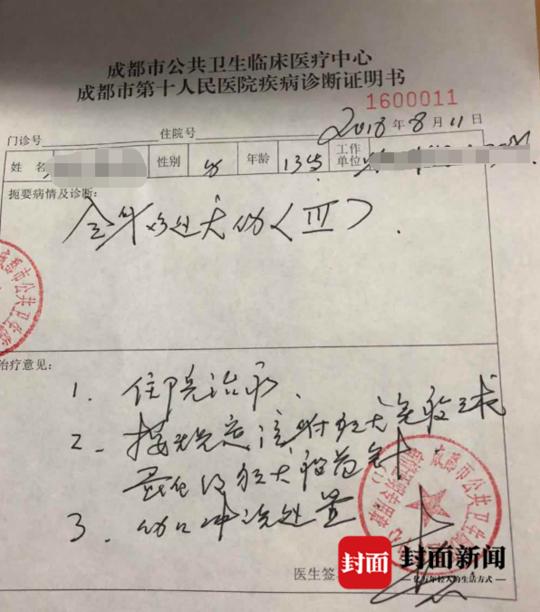 成都市公共卫生临床医疗中心
成都市第十人民医院疾病诊断证明书
1600011
门诊号 住院号 2018年8月11日
姓名 性别 女 年龄 13岁 工作单位
扼要病情及诊断:
全身多处犬伤〈III〉.
治疗意见:
1. 住院治疗.
2. 按规定注射狂犬免疫球
蛋白及狂犬疫苗针
3. 伤口冲洗处置
医生签
封面 封面新闻
亿万年轻人的生活方式